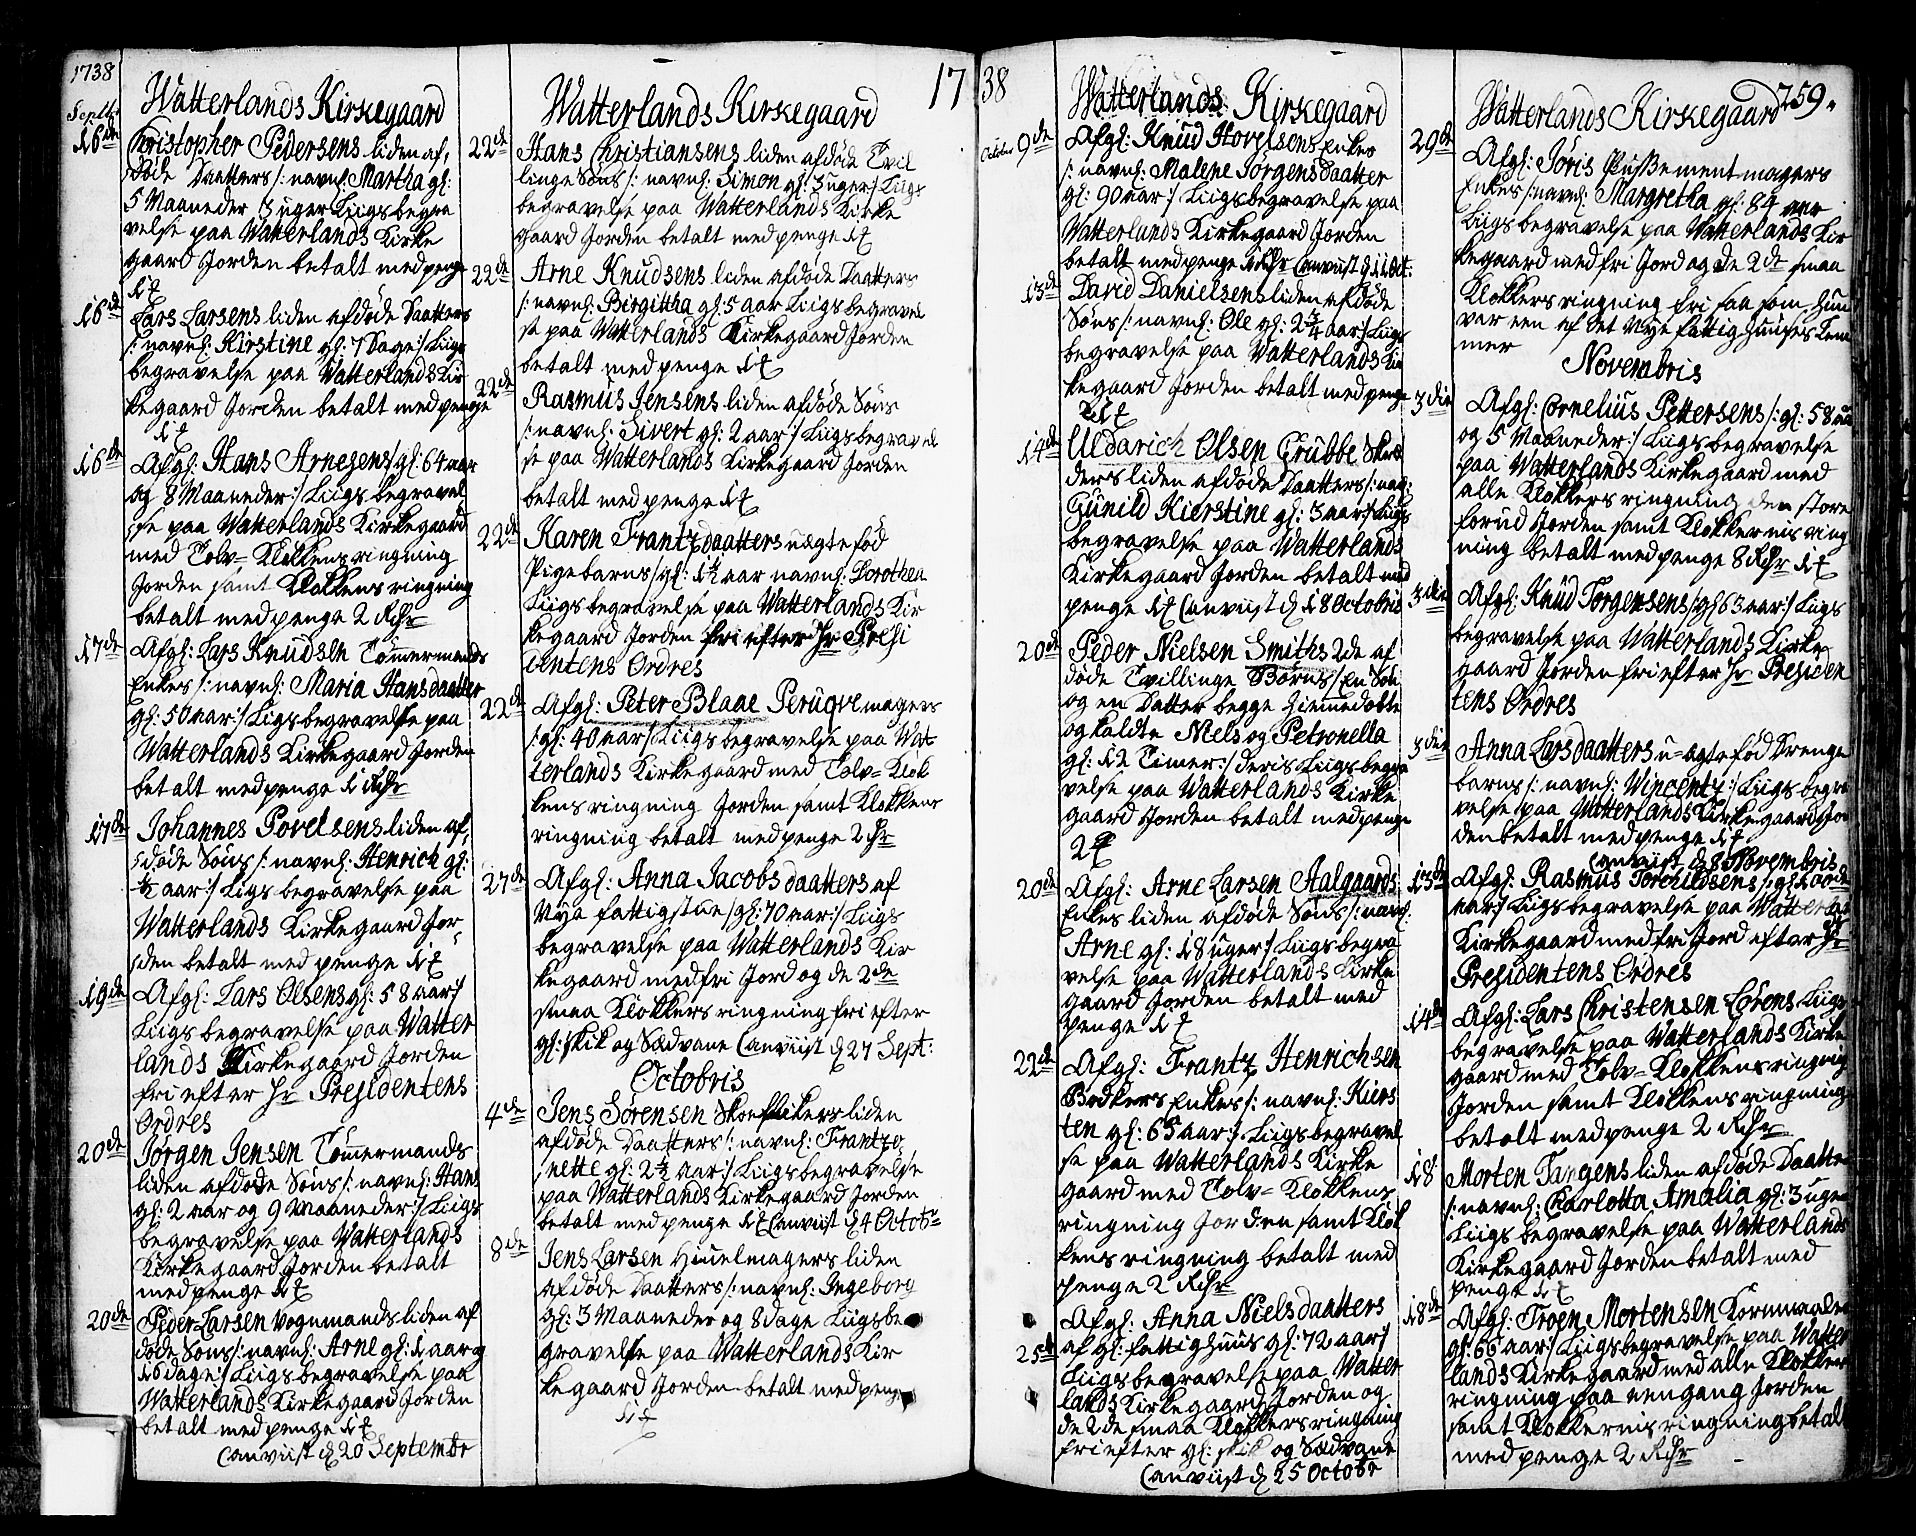 1738
Septbr
Watterlands Kirkegaard
16de Christopher Pedersens liden af¸
døde Daatters /: navnl: Martha gl:
5 Maaneder 3 uger Liigsbegra
velse paa Watterlands Kirke
gaard Jorden betalt med penge
1 ₰
16de Lars Larsens liden afdøde Daatters
/: navnl: Kirstine gl: 7 Dage :/ Liigs
begravelse paa Watterlands Kir
kegaard Jorden betalt med penge
1 ₰
16de Afgl: Hans Arnesens /: gl: 64 aar
og 8 Maaneder :/ Liigsbegravel
se paa Watterlands Kirkegaard
med Tolv= Klokkens ringning
Jorden samt Klokkens ringning
betalt med penge 2 Rdr
17de Afgl: Lars Knudsen Tømmermands
Enkes /: navnl: Maria Hansdaatter
gl: 50 aar :/ Ligsbegravelse paa
Watterlands Kirkegaard Jorden
betalt med penge 1 Rdr
17de Johannes Povelsens liden af,
døde Søns /: navnl: Henrich gl:
½ aar :/ Ligsbegravelse paa
Watterlands Kirkegaard Jor¸
den betalt med penge 1 ₰
19de Afgl: Lars Olsens gl: 58 aar :/
Liigsbegravelse paa Watter
lands Kirkegaard Jorden
fri efter Hr Presidentens
Ordres
20de Jørgen Jensen Tømmermands
liden afdøde Søns /: navnl: Hans
gl: 2 aar og 9 Maaneder :/ Liigs
begravelse paa Watterlands
Kirkegaard Jorden betalt
med penge 1 ₰
20de Peder Larsen Vognmands liden af
døde Søns /: navnl: Arne gl: 1 aar og
16 dage :/ Liigsbegravelse paa
Watterlands Kirkegaard Jorden
betalt med penge 1 ₰
Canviist d 20 Septembr
17
Watterlands Kirkegaard
22de Hans Christiansens liden afdøde Tvil
linge Søns /: navnl: Simon gl: 3 uger :/ Liigs
begravelse paa Watterlands Kirke
gaard Jorden betalt med penge 1 ₰
22de Arne Knudsens liden afdøde Daatters
/: navnl: Birgittha gl: 5 aar Liigsbegravel
se paa Watterlands Kirkegaard Jorden
betalt med penge 1 ₰
22de Rasmus Jensens liden afdøde Søns
/: navnl: Sivert gl: 2 aar :/ Liigsbegravel
se paa Watterlands Kirkegaard Jorden
betalt med penge 1 ₰
22de Karen Frantzdaatters uægtefød
Pigebarns /: gl: 1½ aar navnl: Dorothea
Liigsbegravelse paa Watterlands Kir
kegaard Jorden fri efter Hr Presi
dentens Ordres
22de Afgl: Peter Blaae Peruqvemagers
/: gl: 40 aar :/ Liigsbegravelse paa Wat
terlands Kirkegaard med Tolv= Klok
kens ringning Jorden samt Klokkens
ringning betalt med penge 2 Rdr
27de Afgl: Anna Jacobsdaatters af
Nye fattigstue /: gl: 70 aar :/ Liigs
begravelse paa Watterlands Kir
kegaard med fri Jord og de 2de
smaa Klokkers ringning fri efter
gl: skik og Sædvane Canviist d 27 Sept:
Octobris
4de Jens Sørensen Skoeflikers liden
afdøde Daatters /: navnl: Frantzo¸
nette gl: 2½ aar :/ Liigsbegravelse
paa Watterlands Kirkegaard Jorden
betalt med penge 1 ₰ Canviist d 4 Octobr
8de Jens Larsen Huuelmagers liden
afdøde Daatters /: navnl: Ingeborg
gl: 3 Maaneder og 8 dage Liigsbe
gravelse paa Watterlands Kir
kegaard Jorden betalt med penge
1 ₰
38
Octobris
Watterlands Kirkegaard
9de Afgl: Knud Hovelsens Enkes
/: navnl: Malene Jørgensdaatter
gl: 90 aar :/ Liigsbegravelse paa
Watterlands Kirkegaard Jorden
betalt med penge 1 Rdr Canviist d 11 Oct:
13de David Danielsens liden afdøde
Søns /: navnl: Ole gl: 2¾ aar :/ Liigs
begravelse paa Watterlands Kir
kegaard Jorden betalt med penge
1 ₰
14de Uldarich Olsen Grubbe Skræ
ders liden afdøde Daatters /: nav:
Gunild Kierstine gl: 3 aar :/ Liigs
begravelse paa Watterlands
Kirkegaard Jorden betalt med
penge 1 ₰ Canviist d 18 Octobris
20de Peder Nielsen Smiths 2de af
døde Tvillinge Børns /: En Søn
og en Datter begge hiemmedøbte
og kaldte Niels og Petronella
gl: 12 Timer :/ deris Liigsbegra
velse paa Watterlands Kirke
gaard Jorden betalt med penge
2 ₰
20de Afgl: Arne Larsen Aalgaards
Enkes liden afdøde Søns /: navnl:
Arne gl: 18 uger :/ Liigsbegra
velse paa Watterlands Kirke
gaard Jorden betalt med
penge 1 ₰
22de Afgl: Frantz Henrichsen
Bødkers Enkes /: navnl: Kiers
ten gl: 65 aar :/ Liigsbegravel
se paa Watterlands Kirke
gaard med Tolv= Klokkens
ringning Jorden samt Klok
kens ringning betalt med
penge 2 Rdr
25de Afgl: Anna Nielsdaatters
af gl: fattighuus gl: 72 aar :/
Liigsbegravelse paa Watter
lands Kirkegaard Jorden og
de 2de smaa Klokkers ringning
fri efter gl: skik og Sædvane
Canviist d 25 Octobr
259.
Watterlands Kirkegaard
29de Afgl: Joris Pussementmagers
Enkes /: navnl: Margretha gl: 84 aar
Liigsbegravelse paa Watterlands Kir
kegaard med fri Jord og de 2de smaa
Klokkers ringning fri saa som hun
var een af det Nye fattighuuses Lem
mer
Novembris
3die Afgl: Cornelius Pettersens /: gl: 58 aar
og 5 Maaneder :/ Liigsbegravelse
paa Watterlands Kirkegaard med
alle Klokkers ringning den store
forud Jorden samt Klokkernis ring
ning betalt med penge 8 Rdr 1 ₰
3die Afgl: Knud Torgensens /: gl: 63 aar :/ Liigs
begravelse paa Watterlands Kirke
gaard Jorden fri efter Hr Presiden
tens Ordres
3die Anna Larsdaatters u=ægtefød Drenge
barns /: navnl: Wincentz :/ Liigsbegra
velse paa Watterlands Kirkegaard Jor
den betalt med penge 1 ₰
Canviist d 8 Novembris
13de Afgl: Rasmus Torchildsens /: gl:
aar :/ Liigsbegravelse paa Watterlands
Kirkegaard med fri Jord efter Hr
Presidentens Ordres
14de Afgl: Lars Christensen Lørens Liigs
begravelse paa Watterlands Kirke
gaard med Tolv= Klokkens ringning
Jorden samt Klokkens ringning
betalt med penge 2 Rdr
18 Morten Tangens liden afdøde Daatters
/: navnl: Charlotta Amalia gl: 3 uger
Liigsbegravelse paa Watterlands
Kirkegaard Jorden betalt med
penge 1 ₰
18de Afgl: Troen Mortensen Kornmaaler
gl: 66 aar :/ Liigsbegravelse paa Watter
lands Kirkegaard med alle Klokker
ringning paa een gang Jorden
samt Klokkernis ringning betalt
med penge 2 Rdr